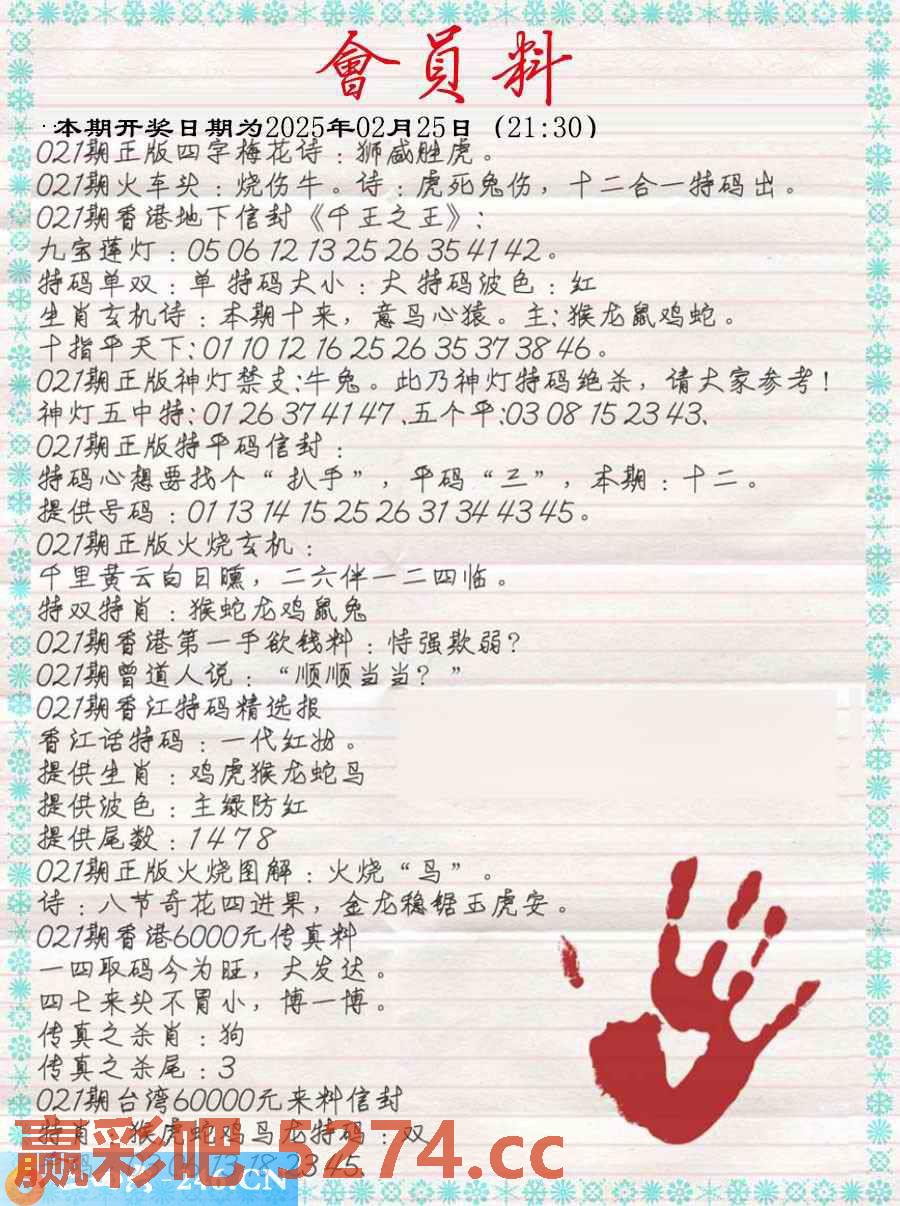 會員料
本期开奖日期为2025年02月25日（21:30）
021期正版四字梅花诗：狮威胜虎。
021期火车头：烧伤牛。诗：虎死兔伤，十二合一特码出。
021期香港地下信封《千王之王》：
九宝莲灯：05 06 12 13 25 26 35 41 42。
特码单双：单 特码大小：大 特码波色：红
生肖玄机诗：本期十来，意鸟心猿。主：猴龙鼠鸡蛇。
十指平天下：01 10 12 16 25 26 35 37 38 46。
021期正版神灯禁支：牛兔。此乃神灯特码绝杀，请大家参考！
神灯五中特：01 26 37 41 47、五个平：03 08 15 23 43、
021期正版特平码信封：
特码心想要找个“扒手”，平码“三”，本期：十二。
提供号码：01 13 14 15 25 26 31 34 43 45。
021期正版火烧玄机：
千里黄云白日曛，二六伴一二四临。
特双特肖：猴蛇龙鸡鼠兔
021期香港第一手欲钱料：恃强欺弱？
021期曾道人说：“顺顺当当？”
021期香江特码精选报
香江话特码：一代红妆。
提供生肖：鸡虎猴龙蛇鸟
提供波色：主绿防红
提供尾数：1 4 7 8
021期正版火烧图解：火烧“鸟”。
诗：八节奇花四进果，金龙稳锯玉虎安。
021期香港6000元传真料
一四取码今为旺，大发达。
四七来头不冒小，博一博。
传真之杀肖：狗
传真之杀尾：3
021期台湾60000元来料信封
特肖：猴虎蛇鸡鸟龙特码：双
06 13 18 23 45、
赢彩吧.5274.cc
246.CN